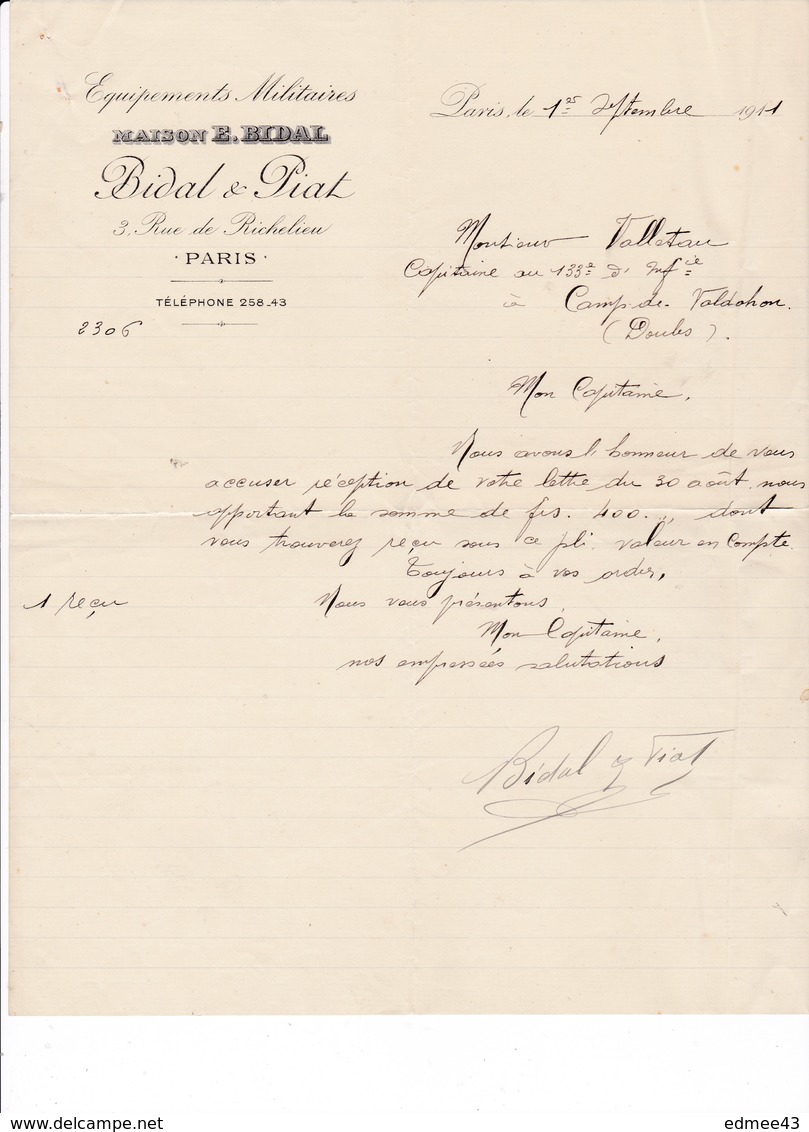 Equipements Militaires
MAISON E. BIDAL
Bidal & Piat
3, Rue de Richelieu
PARIS
TÉLÉPHONE 258-43
2306
Paris, le 1er Septembre 1911
Monsieur Valletau
Capitaine au 133e d'Infie
à Camp-de-Valdahon.
(Doubs).
Mon Capitaine,
Nous avons l'honneur de vous
accuser réception de votre lettre du 30 août, nous
apportant la somme de frs. 400.,, dont
vous trouverez reçu sous ce pli. valeur en compte.
Toujours à vos ordres,
1 reçu
Nous vous présentons,
Mon Capitaine,
nos empressées salutations
Bidal & Piat
delcampe.net
edmee43